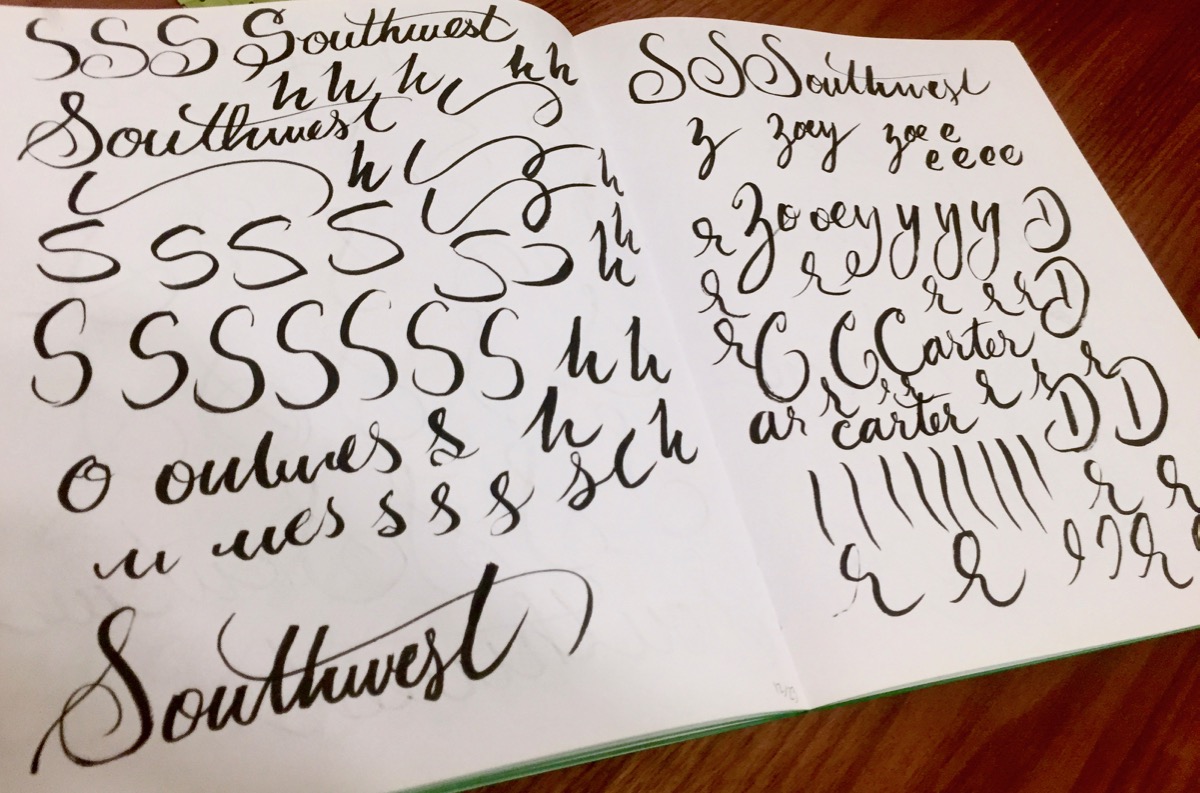 S S S Southwest
h h h h h
Southwest
h h
S S S S S S h h h
S S S S S S S h h
o outwes s h
u wes s s s s h
Southwest
S S Southwest
z zoey zoe e
e e e e
r Zooey y y y D
r r r r r D
r C C Carter r
ar r r r r r D D
carter
r r
r r r